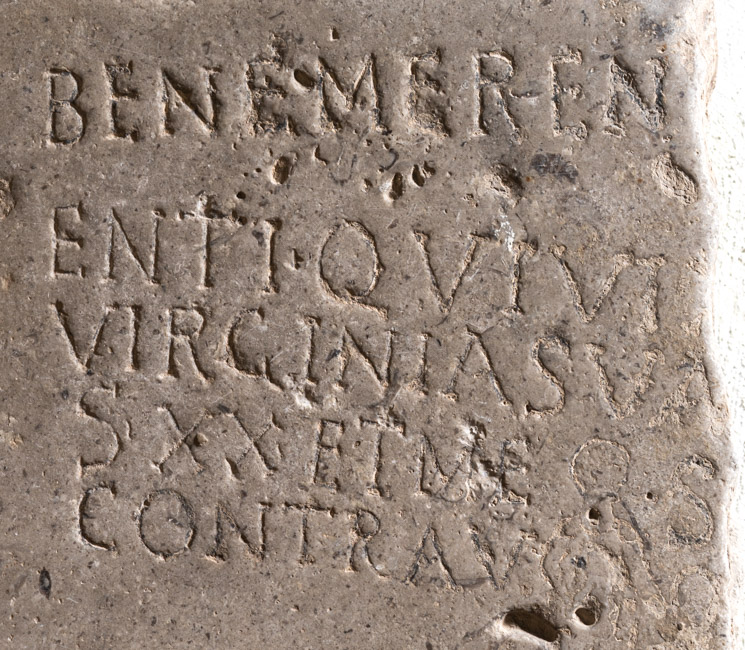 BENEMEREN
ENTI·QVIVI
VIRGINIASVA
SXXETME
CONTRA